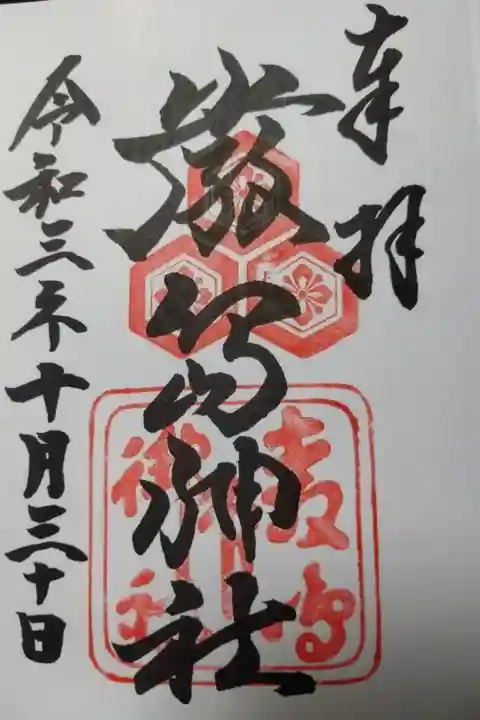 奉拝
厳島神社
令和三年十月三十日
厳島
神社